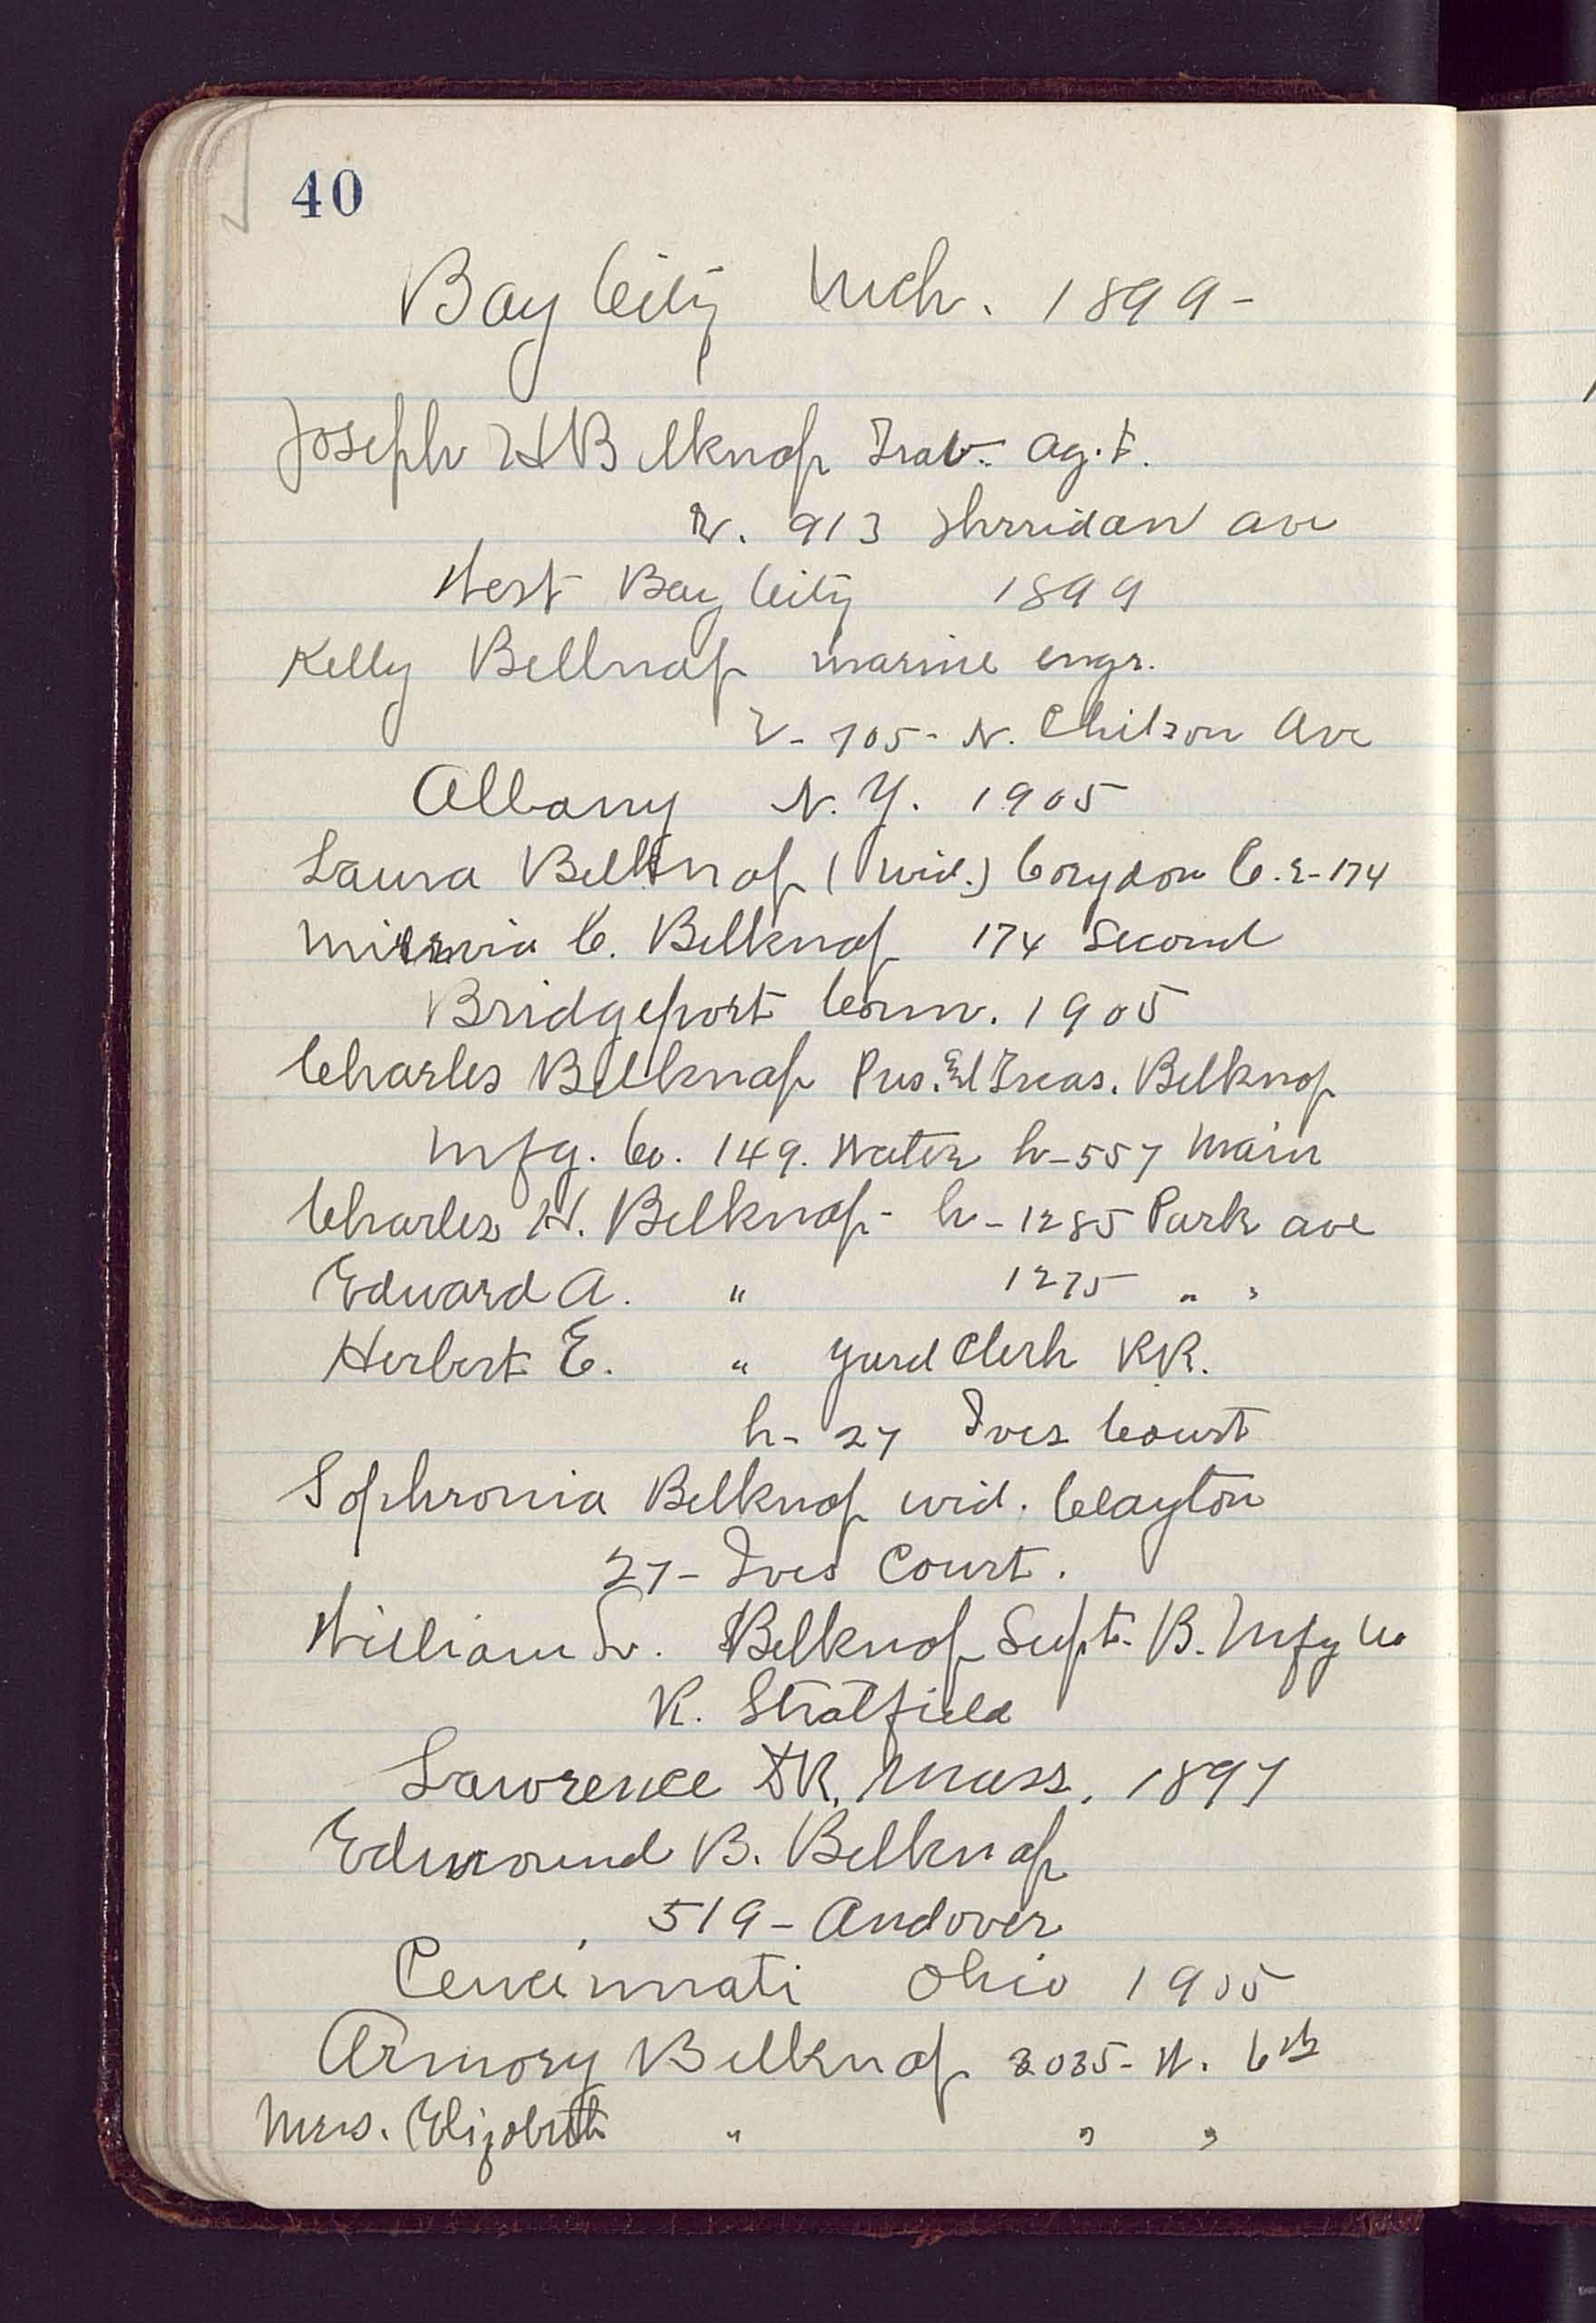 40
Bay City Mich. 1899-
Joseph H Belknap Trav. ag.t.
r. 913 Sherridan ave
West Bay City 1899
Kelly Belknap marine engr.
r- 705- N. Chilson Ave
Albany N.Y. 1905
Laura Belknap (wid.) Corydon C. r-174
Minervia C. Belknap 174 Second
Bridgeport Conn. 1905
Charles Belknap Pres. & Treas. Belknap
Mfg. Co. 149. Water h-557 Main
Charles W. Belknap- h-1285 Park ave
Edward A. " 1275 " "
Herbert E. " yard Clerk RR.
h- 27 Ives Court
Sophronia Belknap wid. Clayton
27- Ives Court.
William S. Belknap Supt. B. Mfg Co
R. Stratfield
Lawrence Mass. 1897
Edmound B. Belknap
519- Andover
Cencinnati Ohio 1905
Armory Belknap 2035- W. 6th
Mrs. Elizabeth " " "